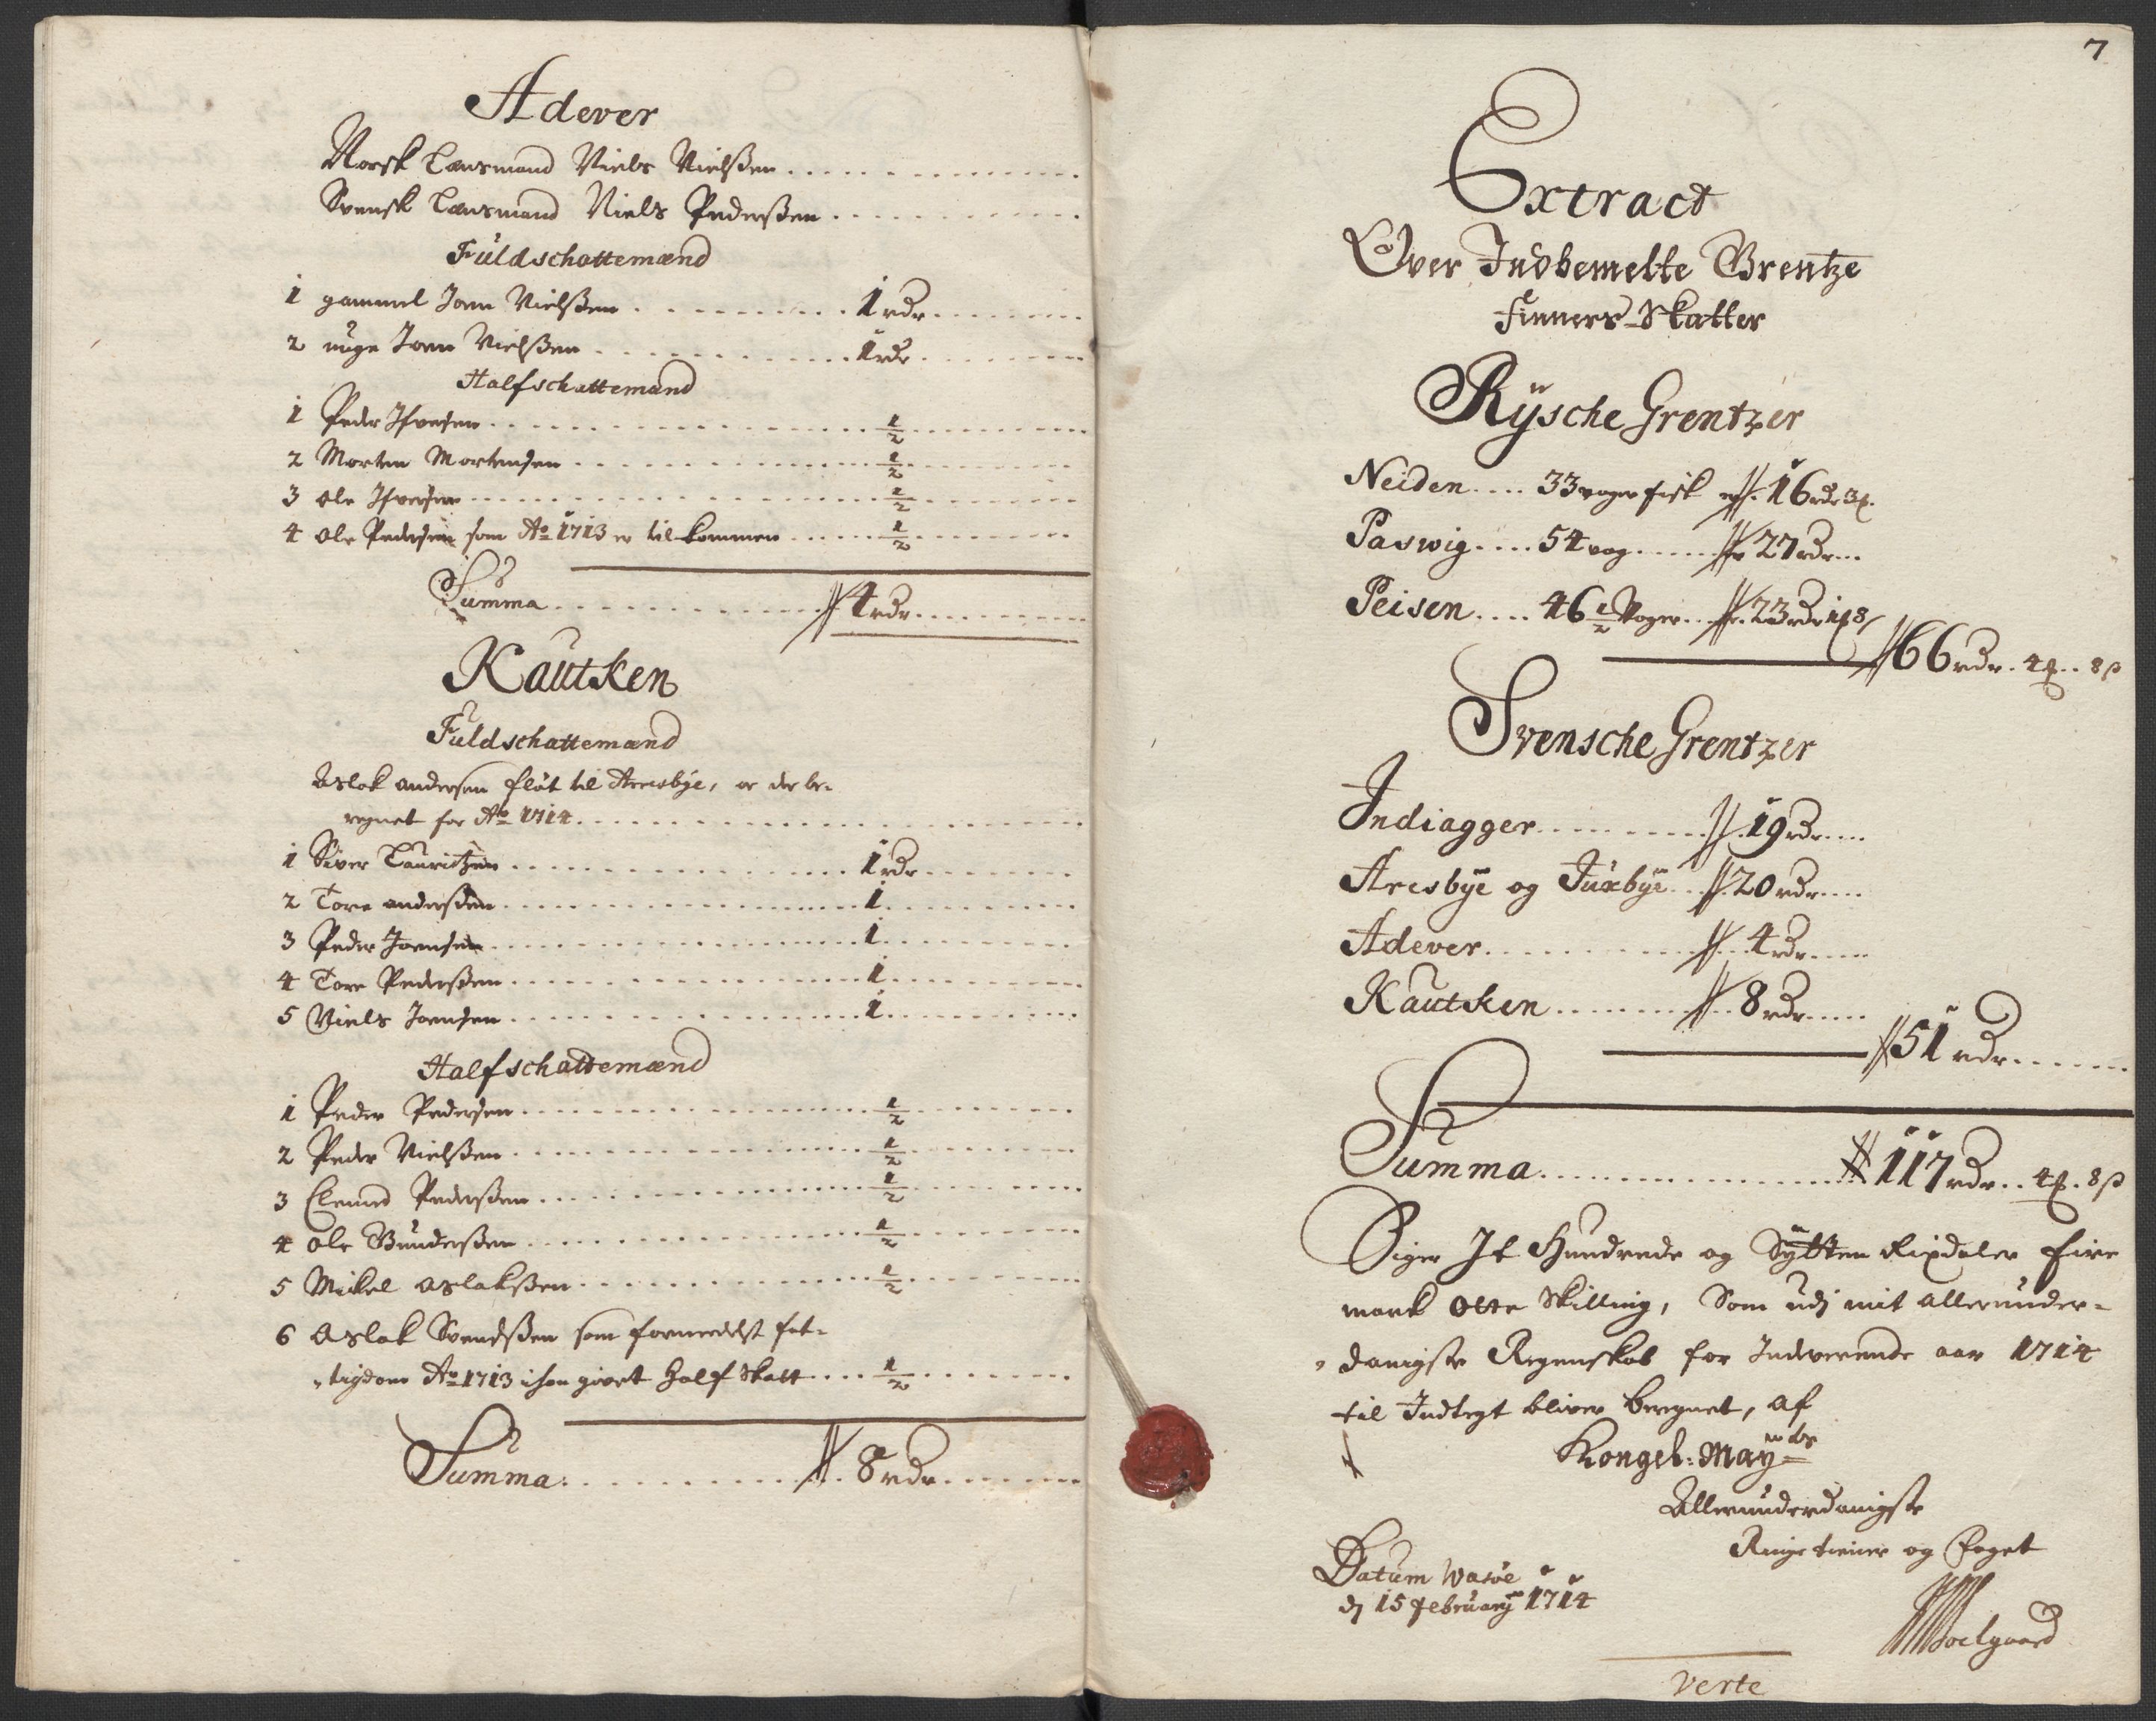 Adever
Norsk Lensmand Niels Nielßen
Svensk Lensmand Niels Pederßen
Fuldschattemænd
1 gammel Joen Nielßen 1 rdr
2 unge Joen Nielßen 1 rdr
Halfschattemænd
1 Peder Ifversen 1/2
2 Morten Mortensen 1/2
3 Ole Ifversen 1/2
4 Ole Pedersen som Ao 1713 er tilkommen 1/2
Summa 4 rdr
Kautken
Fuldschattemænd
Aslak Andersen fløt til Aresbÿe, er der be-
regnet for Ao 1714
1 Siver Lauritzen 1 rdr
2 Tore Anderßen 1
3 Peder Joensen 1
4 Tore Pederßen 1
5 Niels Joensen 1
Halfschattemænd
1 Peder Pedersen 1/2
2 Peder Nielßen 1/2
3 Clemed Pederßen 1/2
4 Ole Gunderßen 1/2
5 Mikel Aslakßen 1/2
6 Aslak Svendßen som formedelst fat-
tigdom Ao 1713 ichon givet Half Skatt 1/2
Summa 8 rdr
7
Extract
Over Indbemelte Grentze
Finners Skatter
Rÿsche Grentzer
Neiden 33 voger fisk er 16 rdr 3 ℔
Paswig 54 vog 27 rdr
Peisen 46 1/2 Voger 23 rdr 1 ℔ 8
66 rdr 4 ℔ 8 ß
Svensche Grentzer
Indiagger 19 rdr
Aresbÿe og Juxbÿe 20 rdr
Adever 4 rdr
Kautken 8 rdr
51 rdr
Summa 117 rdr 4 ℔ 8 ß
Siger It Hundrede og Sÿtten Rixdaler fire
mark otte Skilling, Som udj mit allerunder-
danigste Regenskab for Indeverende aar 1714
til Indtegt bliver beregnet, af
Kongel: Maÿts
Allerunderdanigste
Ringe tiener og Foget
Datum Wasøe
dj 15 februarij 1714
Soelgaard
Verte